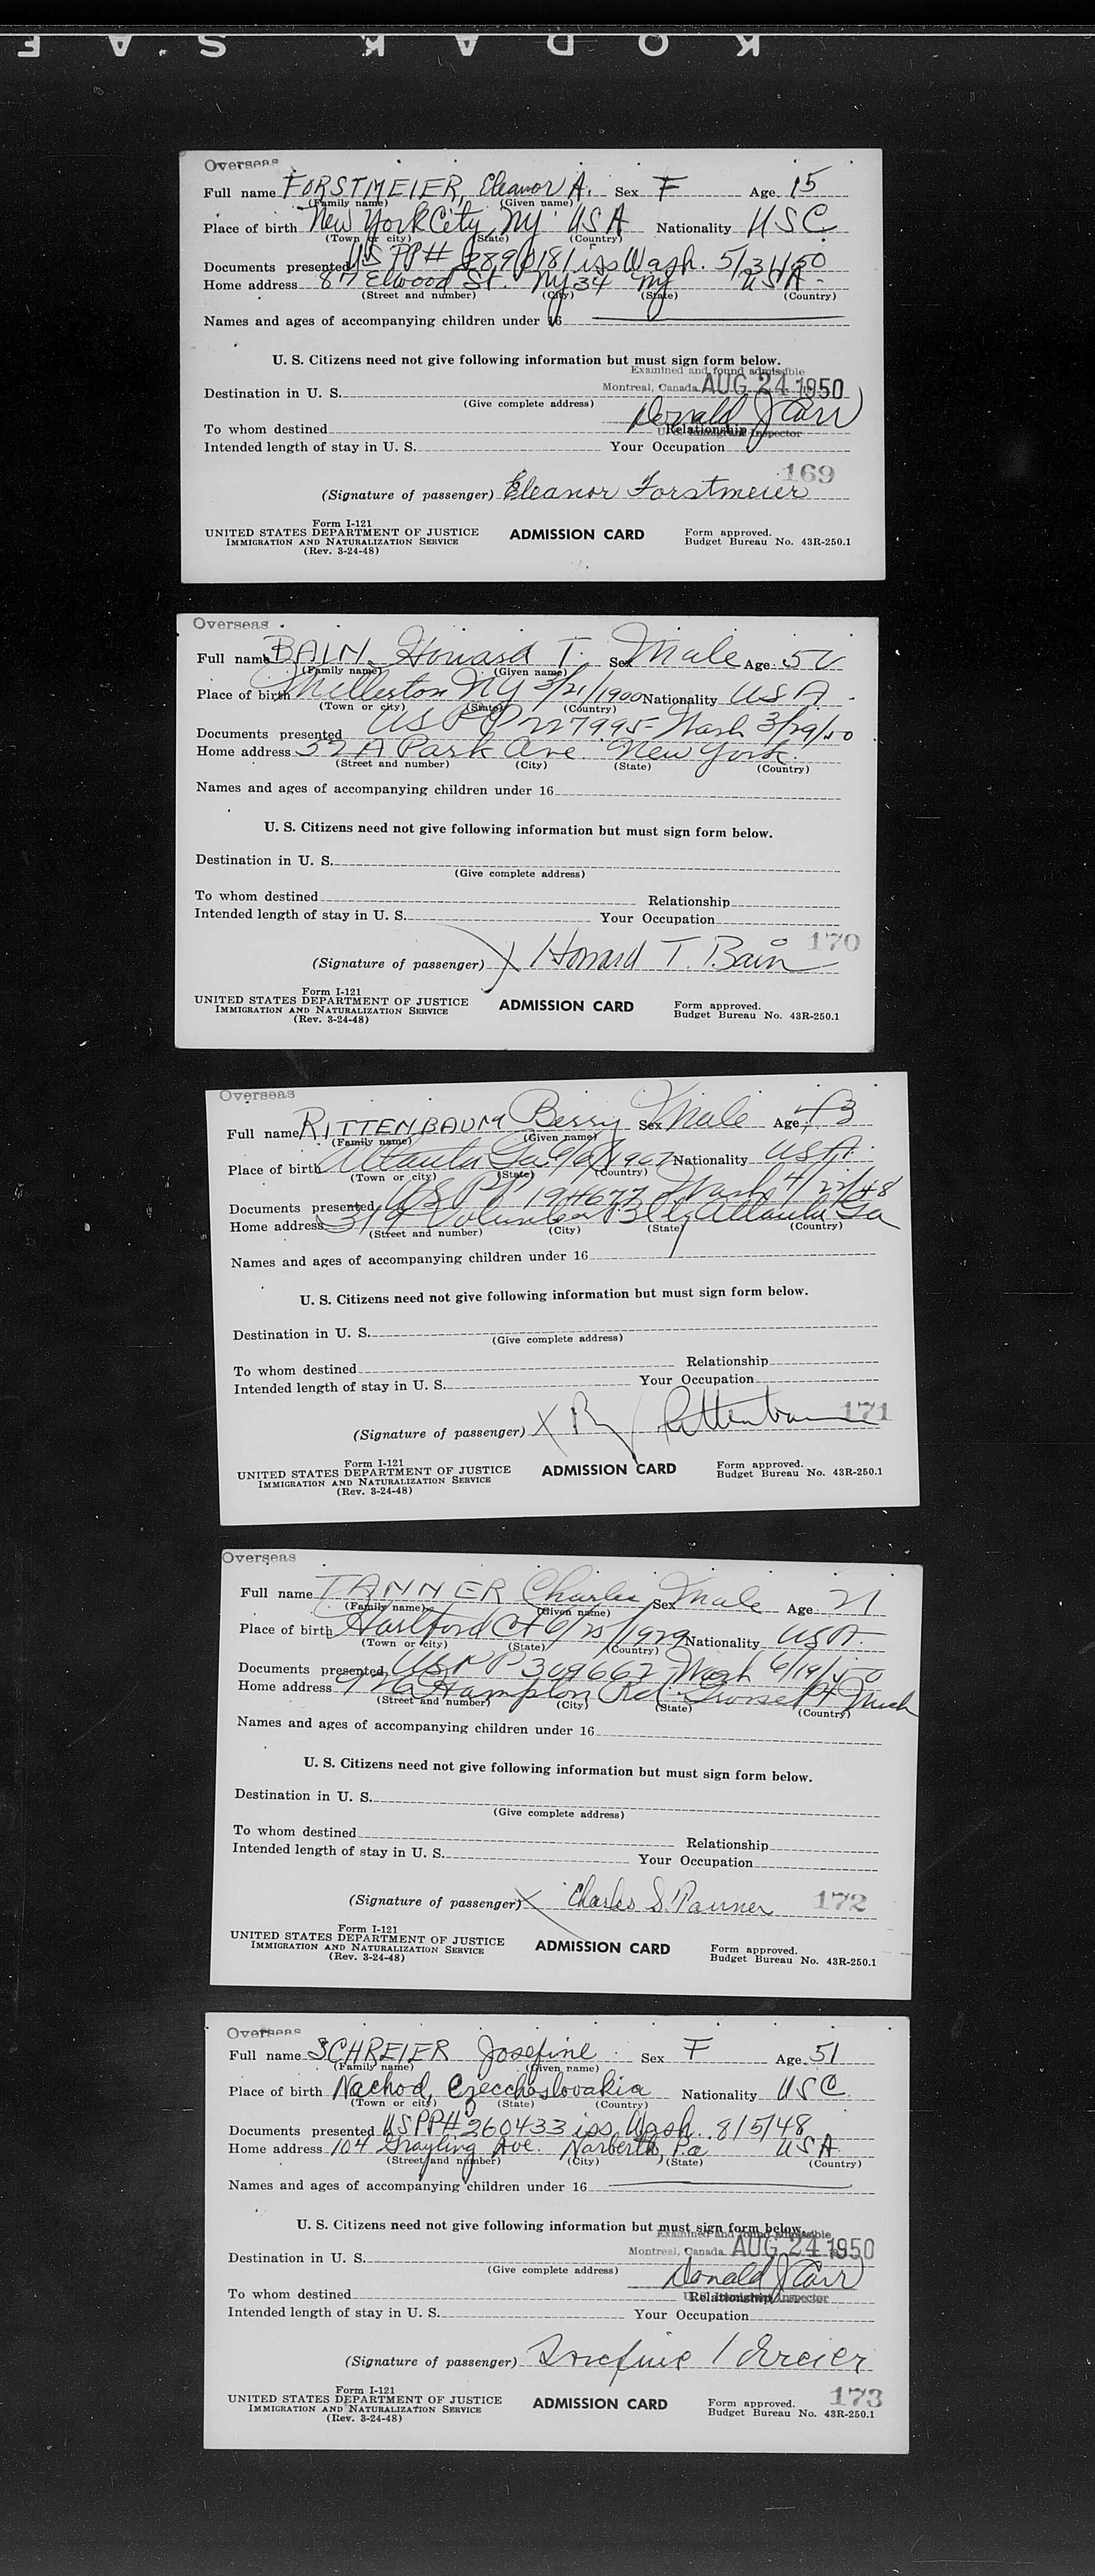 KODAK SAF
Overseas
Full name FORSTMEIER, Eleanor A. Sex F Age 15
(Family name) (Given name)
Place of birth New York City, NY USA Nationality USC
(Town or city) (State) (Country)
Documents presented US PP# iss Wash. 5/31/50
Home address 87 Elwood St. NY 34 NY USA
(Street and number) (City) (State) (Country)
Names and ages of accompanying children under 16
U. S. Citizens need not give following information but must sign form below.
Examined and found admissible
Destination in U. S. Montreal, Canada AUG 24 1950
(Give complete address)
Donald J Carr
To whom destined Relationship
U.S. Immigrant Inspector
Intended length of stay in U. S. Your Occupation
169
(Signature of passenger) Eleanor Forstmeier
Form I-121
UNITED STATES DEPARTMENT OF JUSTICE ADMISSION CARD Form approved.
IMMIGRATION AND NATURALIZATION SERVICE Budget Bureau No. 43R-250.1
(Rev. 3-24-48)
Overseas
Full name BAIN, Howard T. Sex Male Age 50
(Family name) (Given name)
Place of birth Millerton NY 3/21/1900 Nationality USA
(Town or city) (State) (Country)
Documents presented US PP 227995 Wash 3/29/50
Home address Park Ave. New York.
(Street and number) (City) (State) (Country)
Names and ages of accompanying children under 16
U. S. Citizens need not give following information but must sign form below.
Destination in U. S.
(Give complete address)
To whom destined Relationship
Intended length of stay in U. S. Your Occupation
170
(Signature of passenger) X Howard T. Bain
Form I-121
UNITED STATES DEPARTMENT OF JUSTICE ADMISSION CARD Form approved.
IMMIGRATION AND NATURALIZATION SERVICE Budget Bureau No. 43R-250.1
(Rev. 3-24-48)
Overseas
Full name RITTENBAUM Berry Sex Male Age 43
(Family name) (Given name)
Place of birth Atlanta Ga Nationality USA
(Town or city) (State) (Country)
Documents presented US PP 194677 Wash 4/22/48
Home address 319 Volunteer Bldg Atlanta Ga
(Street and number) (City) (State) (Country)
Names and ages of accompanying children under 16
U. S. Citizens need not give following information but must sign form below.
Destination in U. S.
(Give complete address)
To whom destined Relationship
Intended length of stay in U. S. Your Occupation
171
(Signature of passenger) X Rittenbaum
Form I-121
UNITED STATES DEPARTMENT OF JUSTICE ADMISSION CARD Form approved.
IMMIGRATION AND NATURALIZATION SERVICE Budget Bureau No. 43R-250.1
(Rev. 3-24-48)
Overseas
Full name TANNER Charles Sex Male Age 21
(Family name) (Given name)
Place of birth Hartford Ct 6/25/1929 Nationality USA
(Town or city) (State) (Country)
Documents presented US PP 309662 Wash 6/19/50
Home address 926 Hampton Rd Mich
(Street and number) (City) (State) (Country)
Names and ages of accompanying children under 16
U. S. Citizens need not give following information but must sign form below.
Destination in U. S.
(Give complete address)
To whom destined Relationship
Intended length of stay in U. S. Your Occupation
(Signature of passenger) X Charles S. Tanner 172
Form I-121
UNITED STATES DEPARTMENT OF JUSTICE ADMISSION CARD Form approved.
IMMIGRATION AND NATURALIZATION SERVICE Budget Bureau No. 43R-250.1
(Rev. 3-24-48)
Overseas
Full name SCHREIER Josefine Sex F Age 51
(Family name) (Given name)
Place of birth Nachod, Czecchoslovakia Nationality USC
(Town or city) (State) (Country)
Documents presented USPP# 260433 iss Wash. 8/5/48
Home address 104 Grayling Ave. Narberth, Pa USA
(Street and number) (City) (State) (Country)
Names and ages of accompanying children under 16
U. S. Citizens need not give following information but must sign form below.
Examined and found admissible
Montreal, Canada AUG 24 1950
Destination in U. S.
(Give complete address)
Donald J Carr
To whom destined Relationship
U.S. Immigrant Inspector
Intended length of stay in U. S. Your Occupation
(Signature of passenger) Josefine Schreier
Form I-121 173
UNITED STATES DEPARTMENT OF JUSTICE ADMISSION CARD Form approved.
IMMIGRATION AND NATURALIZATION SERVICE Budget Bureau No. 43R-250.1
(Rev. 3-24-48)